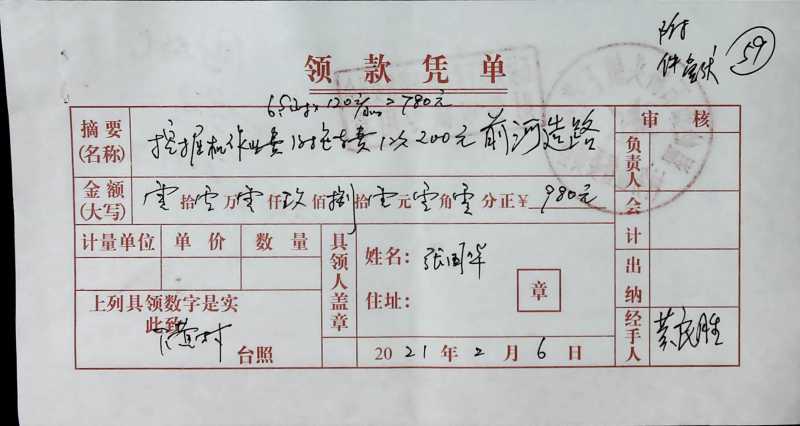 附
件壹张 59
领款凭单
6.5小时×120元/小时=780元
摘要(名称) 挖掘机作业费 拖车费1次200元 前河造路
审核
负责人
金额(大写) 零拾零万零仟玖佰捌拾零元零角零分正¥ 980元
会计
计量单位 单价 数量
具领人盖章
姓名: 张国华
住址:
章
出纳
上列具领数字是实
此致
黄村 台照
2021年2月6日
经手人 黄民胜